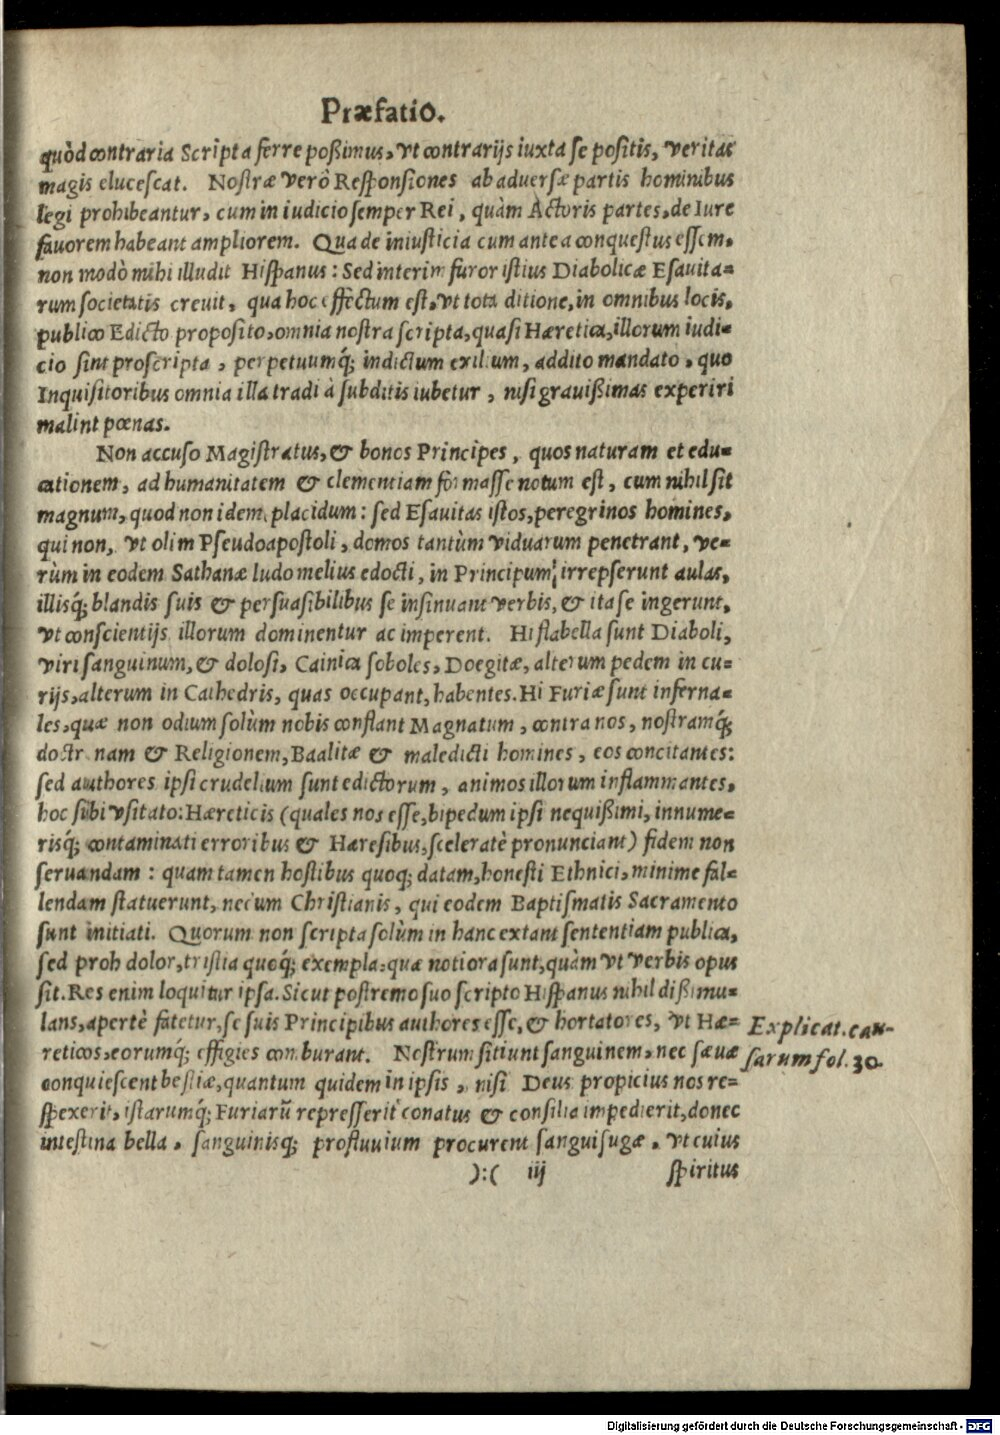 Præfatio.
quòd contraria Scripta ferre poßimus, vt contrarijs iuxta se positis, veritas
magis elucescat. Nostræ verò Responsiones ab aduersæ partis hominibus
legi prohibeantur, cum in iudicio semper Rei, quàm Actoris partes, de Iure
fauorem habeant ampliorem. Qua de iniusticia cum antea conquestus essem,
non modò mihi illudit Hispanus: Sed interim furor istius Diabolicæ Esauita=
rum societatis creuit, qua hoc effectum est, vt tota ditione, in omnibus locis,
publico Edicto proposito, omnia nostra scripta, quasi Hæretica, illorum iudi=
cio sint proscripta, perpetuumq́; indictum exilium, addito mandato, quo
Inquisitoribus omnia illa tradi à subditis iubetur, nisi grauißimas experiri
malint pœnas.
Non accuso Magistratus, & bonos Principes, quos naturam et edu=
cationem, ad humanitatem & clementiam formasse notum est, cum nihil sit
magnum, quod non idem placidum: sed Esauitas istos, peregrinos homines,
qui non, vt olim Pseudoapostoli, domos tantùm viduarum penetrant, ve=
rùm in eodem Sathanæ ludo melius edocti, in Principum irrepserunt aulas,
illisq́; blandis suis & persuasibilibus se insinuant verbis, & ita se ingerunt,
vt conscientijs illorum dominentur ac imperent. Hi flabella sunt Diaboli,
viri sanguinum, & dolosi, Cainica soboles, Doegitæ, alterum pedem in cu=
rijs, alterum in Cathedris, quas occupant, habentes. Hi Furiæ sunt inferna=
les, quæ non odium solùm nobis conflant Magnatum, contra nos, nostramq́;
doctrinam & Religionem, Baalitæ & maledicti homines, eos concitantes:
sed authores ipsi crudelium sunt edictorum, animos illorum inflammantes,
hoc sibi vsitato: Hæreticis (quales nos esse, bipedum ipsi nequißimi, innume=
risq́; contaminati erroribus & Hæresibus, sceleratè pronunciant) fidem non
seruandam: quam tamen hostibus quoq; datam, honesti Ethnici, minime fal=
lendam statuerunt, necum Christianis, qui eodem Baptismatis Sacramento
sunt initiati. Quorum non scripta solùm in hanc extant sententiam publica,
sed proh dolor, tristia quoq́; exempla: quæ notiora sunt, quàm vt verbis opus
sit. Res enim loquitur ipsa. Sicut postremo suo scripto Hispanus nihil dißimu=
lans, apertè fatetur, se suis Principibus authores esse, & hortatores, vt Hæ=
reticos, eorumq́; effigies comburant. Nostrum sitiunt sanguinem, nec sæuæ
conquiescent bestiæ, quantum quidem in ipsis, nisi Deus propicius nos re=
spexerit, istarumq́; Furiarũ represserit conatus & consilia impedierit, donec
intestina bella, sanguinisq; profluuium procurent sanguisugæ, vt cuius
):( iij spiritus
Explicat. cau-
sarum fol. 30.
Digitalisierung gefördert durch die Deutsche Forschungsgemeinschaft - DFG